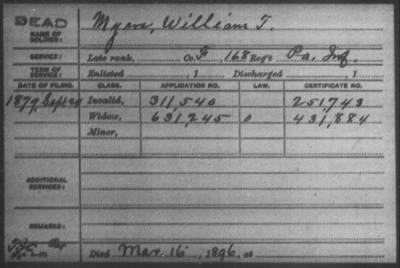 DEAD
NAME OF SOLDIER: Myers, William T.
SERVICE: Late rank, Co. F, 168 Reg't Pa. Inf.
TERM OF SERVICE: Enlisted , 1 Discharged , 1
DATE OF FILING. CLASS. APPLICATION NO. LAW. CERTIFICATE NO.
1879, Sept 24 Invalid, 311,540 251,743
Widow, 631,245 431,884
Minor,
ADDITIONAL SERVICES:
REMARKS:
Died Mar. 16, 1896, at